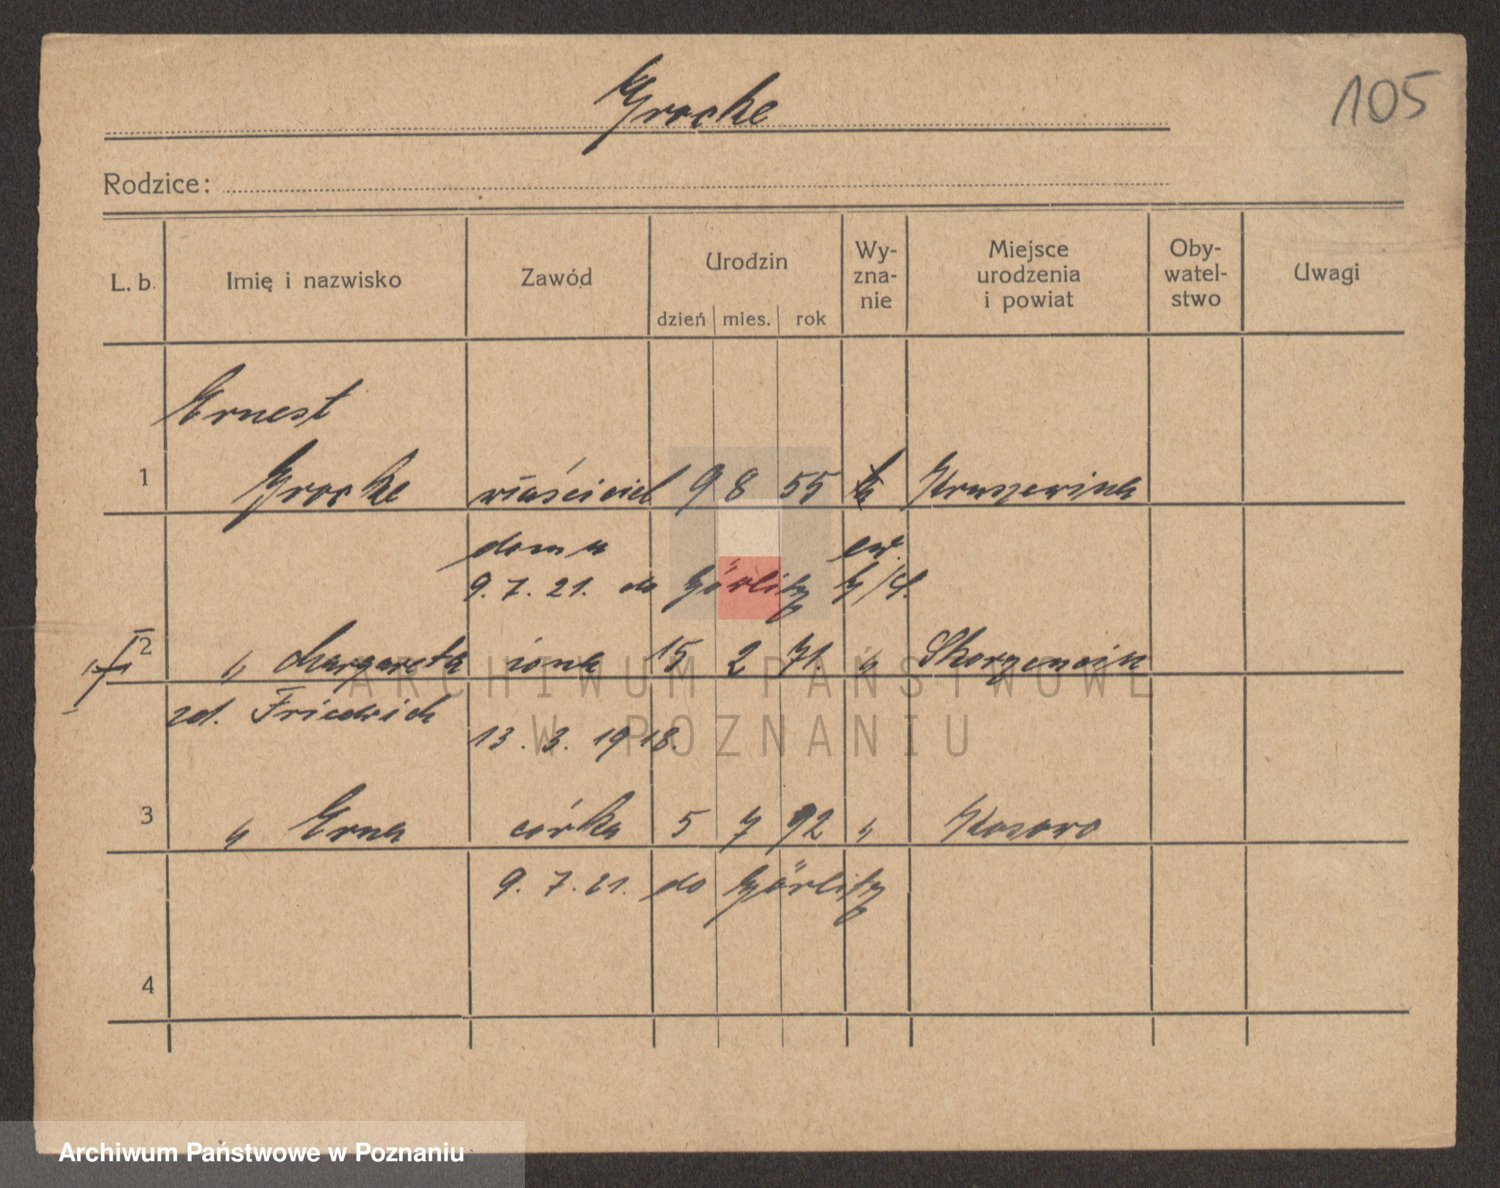 Grocke
105
Rodzice:
L. b. Imię i nazwisko Zawód Urodzin dzień mies. rok Wy-zna-nie Miejsce urodzenia i powiat Oby-watel-stwo Uwagi
Ernest
1 Grocke właściciel 9 8 55 Kruszewina
domu ew.
9. 7. 21. do Görlitz
2 " Margareta żona 15 2 71 "
zd. Friedrich
13. 3. 1918.
3 " Erna córka 5 7 92 "
9. 7. 21. do Görlitz
4
ARCHIWUM PAŃSTWOWE
W POZNANIU
Archiwum Państwowe w Poznaniu